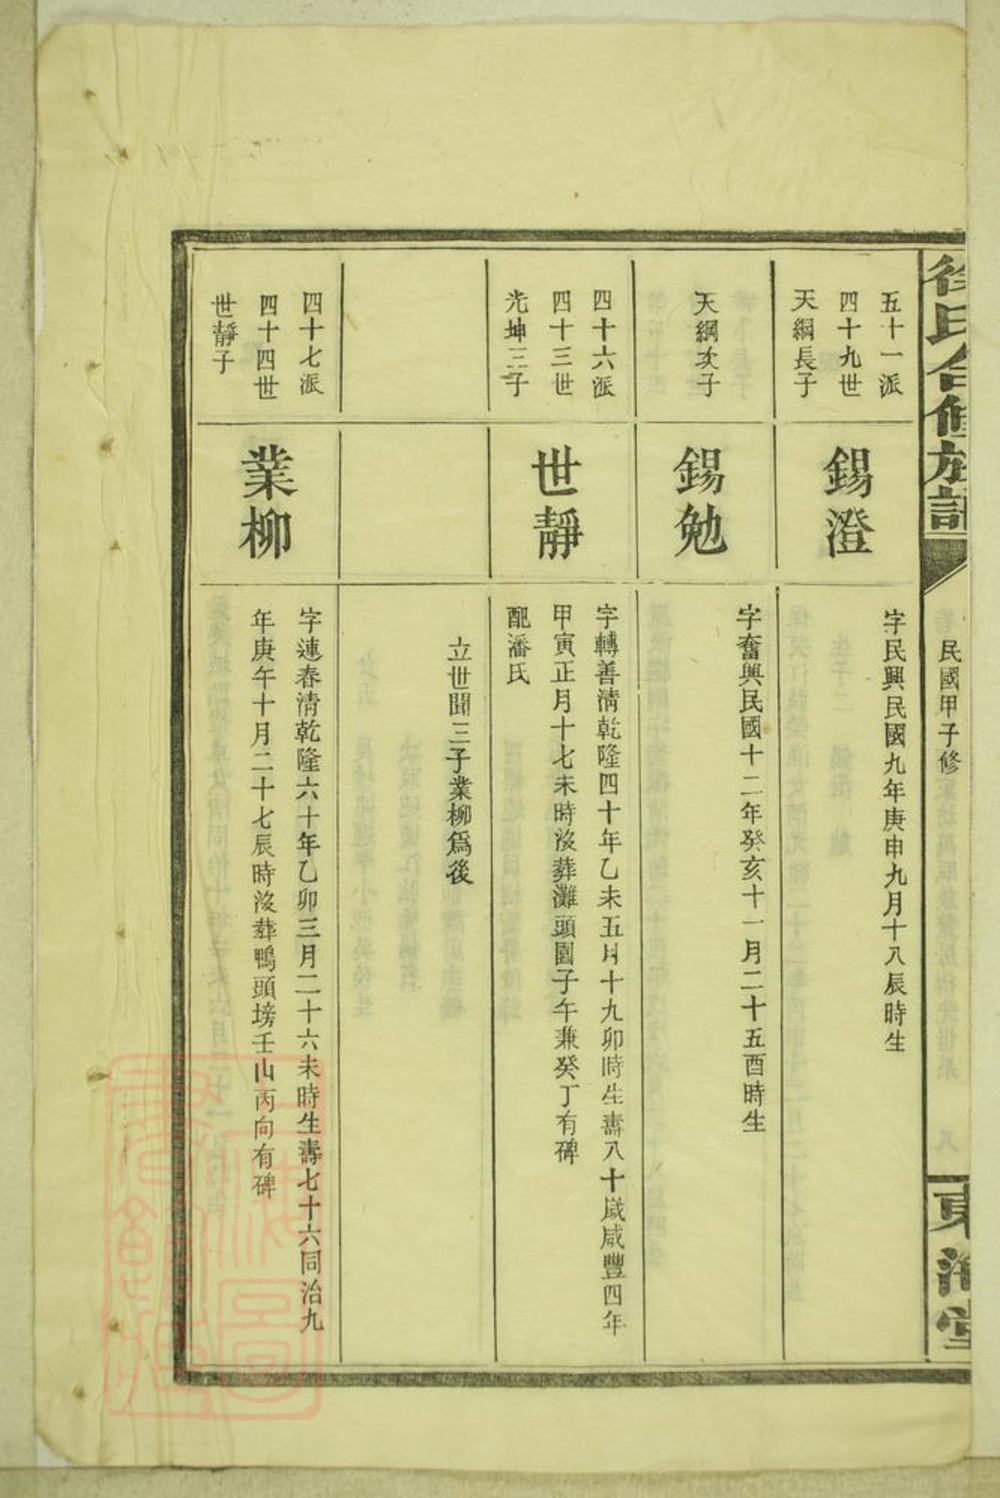 徐氏合修族譜
民國甲子修
東海堂
五十一派
四十九世
天綱長子
錫澄
字民興民國九年庚申九月十八辰時生
天綱次子
錫勉
字奮興民國十二年癸亥十一月二十五酉時生
四十六派
四十三世
光坤三子
世靜
字轉善清乾隆四十年乙未五月十九卯時生壽八十歲咸豐四年
甲寅正月十七未時沒葬灘頭園子午兼癸丁有碑
配潘氏
立世聞三子業柳爲後
四十七派
四十四世
世靜子
業柳
字連春清乾隆六十年乙卯三月二十六未時生壽七十六同治九
年庚午十月二十七辰時沒葬鴨頭塝壬山丙向有碑